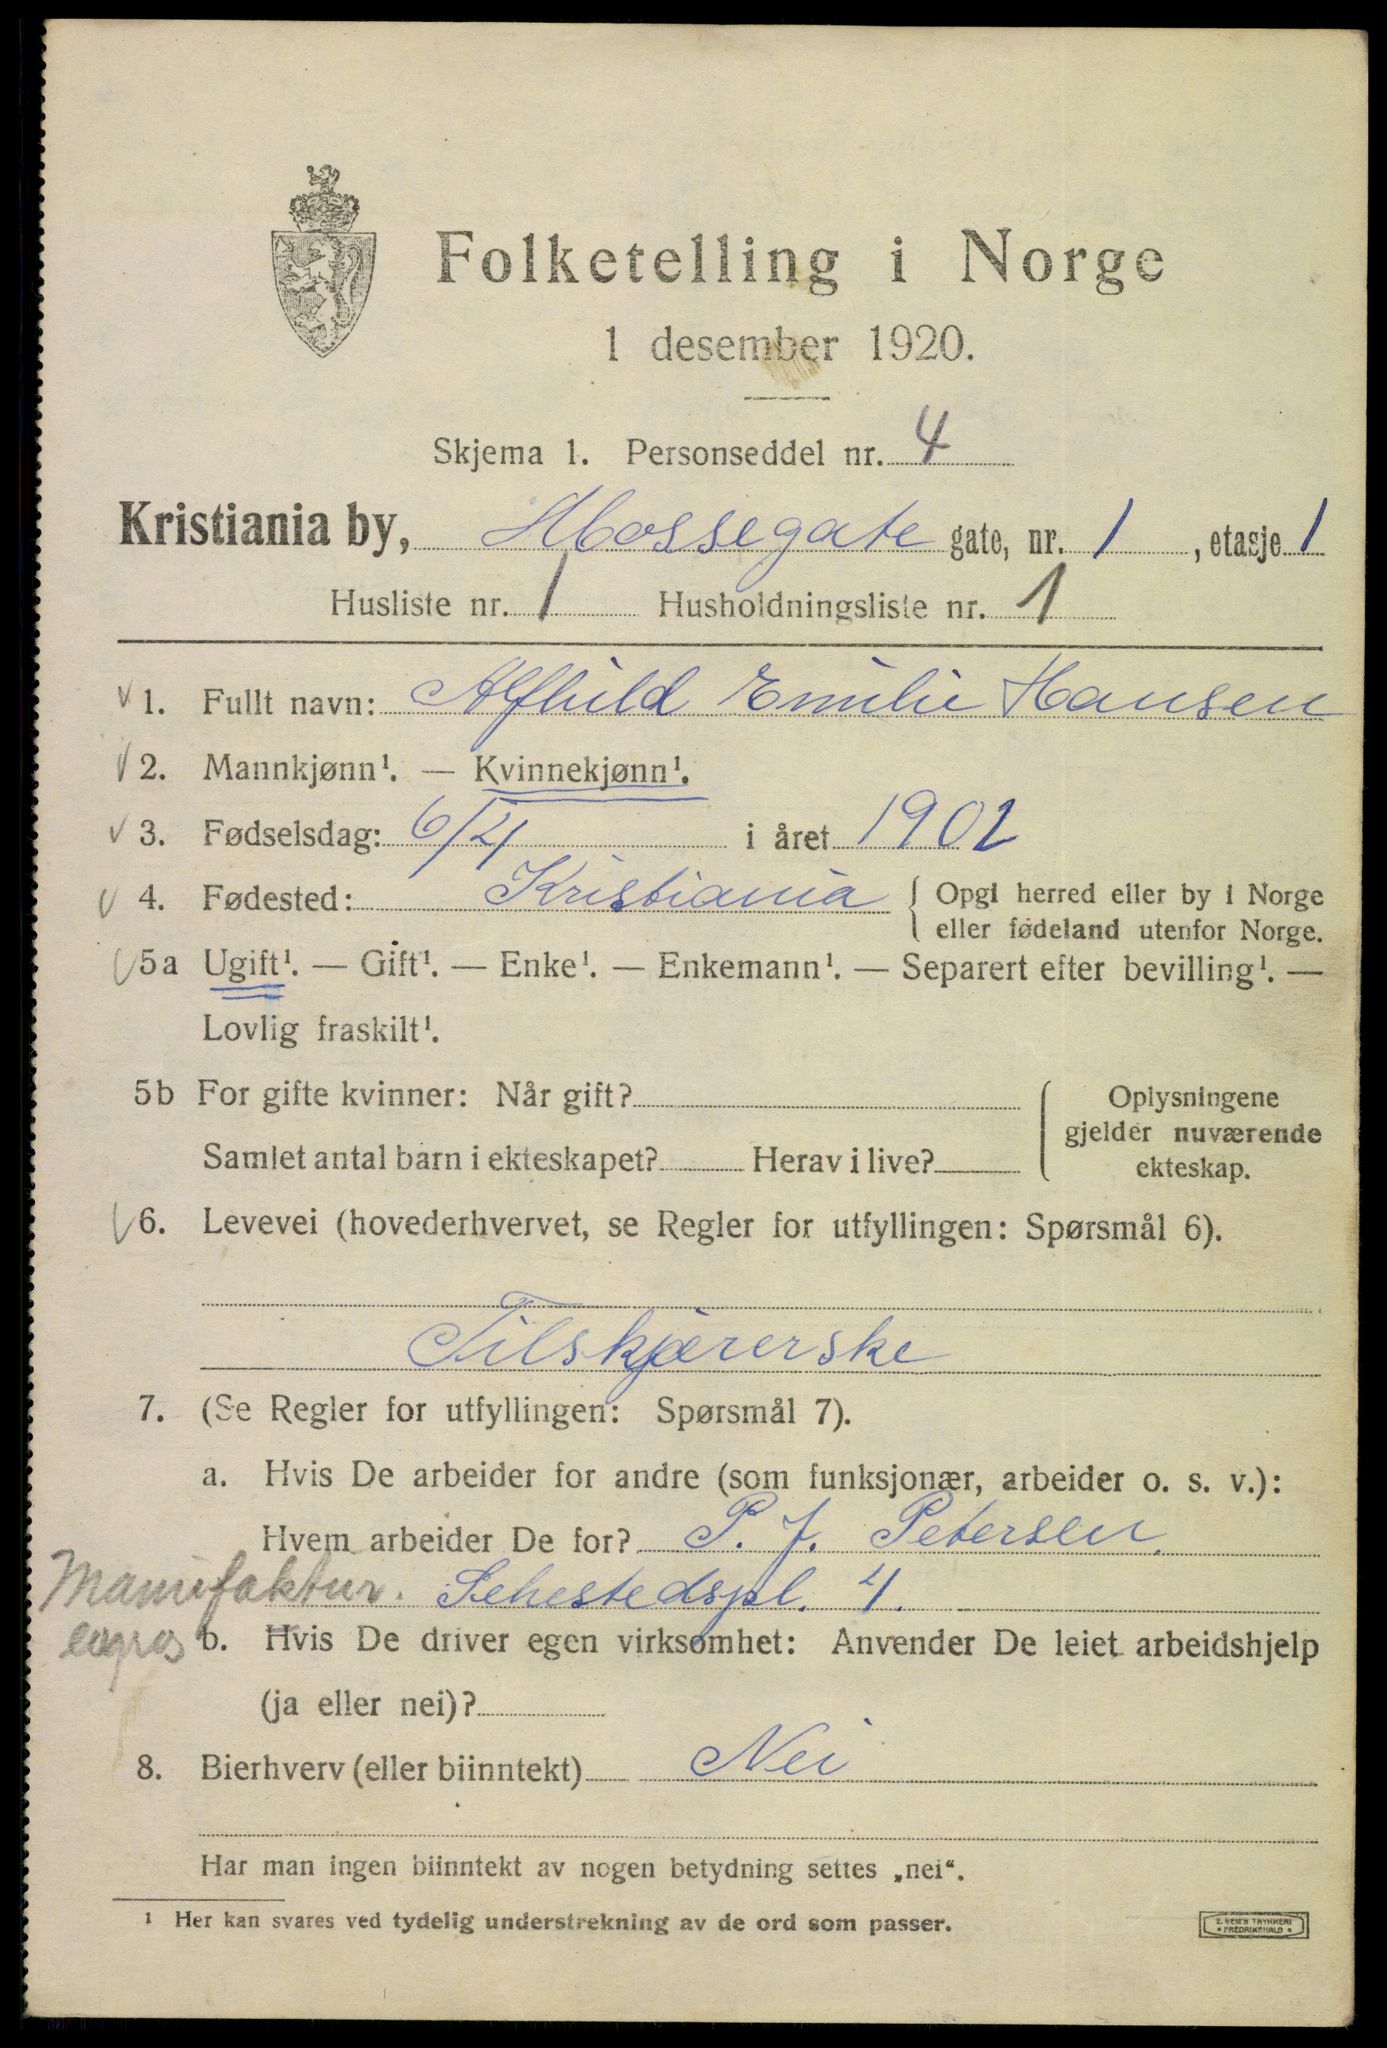 Folketelling i Norge
1 desember 1920.
Skjema 1. Personseddel nr. 4
Kristiania by, Mossegate gate, nr. 1, etasje 1
Husliste nr. 1 Husholdningsliste nr. 1
1. Fullt navn: Alfhild Emilie Hansen
2. Mannkjønn¹. — Kvinnekjønn¹.
3. Fødselsdag: 6/4 i året 1902
4. Fødested: Kristiania { Opgi herred eller by i Norge
eller fødeland utenfor Norge.
5a Ugift¹. — Gift¹. — Enke¹. — Enkemann¹. — Separert efter bevilling¹. —
Lovlig fraskilt¹.
5b For gifte kvinner: Når gift?
Samlet antal barn i ekteskapet? Herav i live?
Oplysningene
gjelder nuværende
ekteskap.
6. Levevei (hovederhvervet, se Regler for utfyllingen: Spørsmål 6).
Tilskjærerske
7. (Se Regler for utfyllingen: Spørsmål 7).
a. Hvis De arbeider for andre (som funksjonær, arbeider o. s. v.):
Hvem arbeider De for? P. J. Petersen.
Manufaktur. Sehestedspl. 4.
engros b. Hvis De driver egen virksomhet: Anvender De leiet arbeidshjelp
(ja eller nei)?
8. Bierhverv (eller biinntekt) Nei
Har man ingen biinntekt av nogen betydning settes „nei“.
¹ Her kan svares ved tydelig understrekning av de ord som passer.
E. SEM'S TRYKKERI
* FREDRIKSHALD *